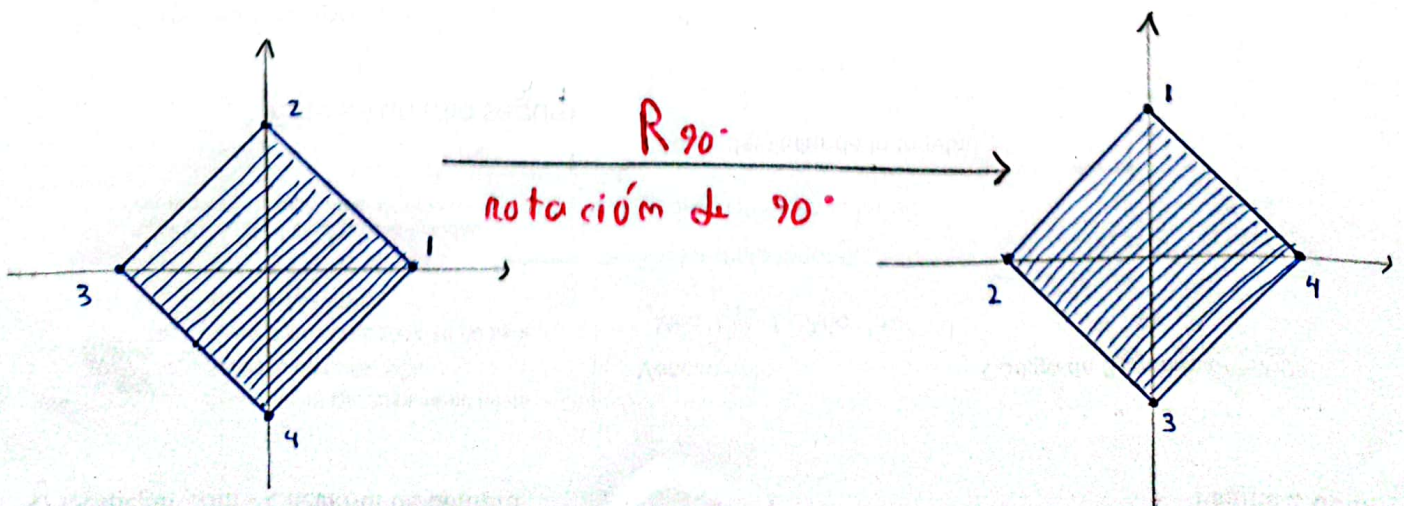 2
1
3
4
R 90°
rotación de 90°
1
2
4
3